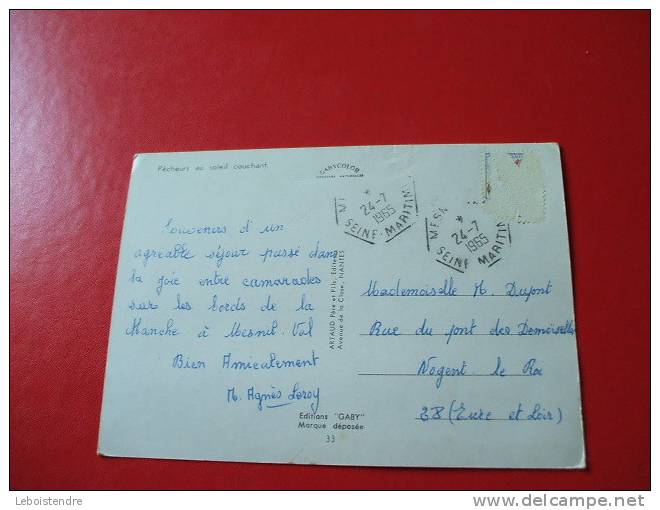 Pêcheurs au soleil couchant.
GABYCOLOR
*
24-7
1965
SEINE-MARITIM
MESN
*
24-7
1965
SEINE MARITIM
Souvenirs d'un
agreable séjour passé dans
la joie entre camarades
sur les bords de la
Manche à Mesnil. Val
Bien Amicalement
M. Agnès Leroy
ARTAUD Père et Fils, Editeurs
Avenue de la Close, NANTES
Mademoiselle M. Dupont
Rue du pont des Demoiselles
Nogent le Roi
28 (Eure et Loir)
Editions "GABY"
Marque déposée
33
Leboistendre
delcampe.net